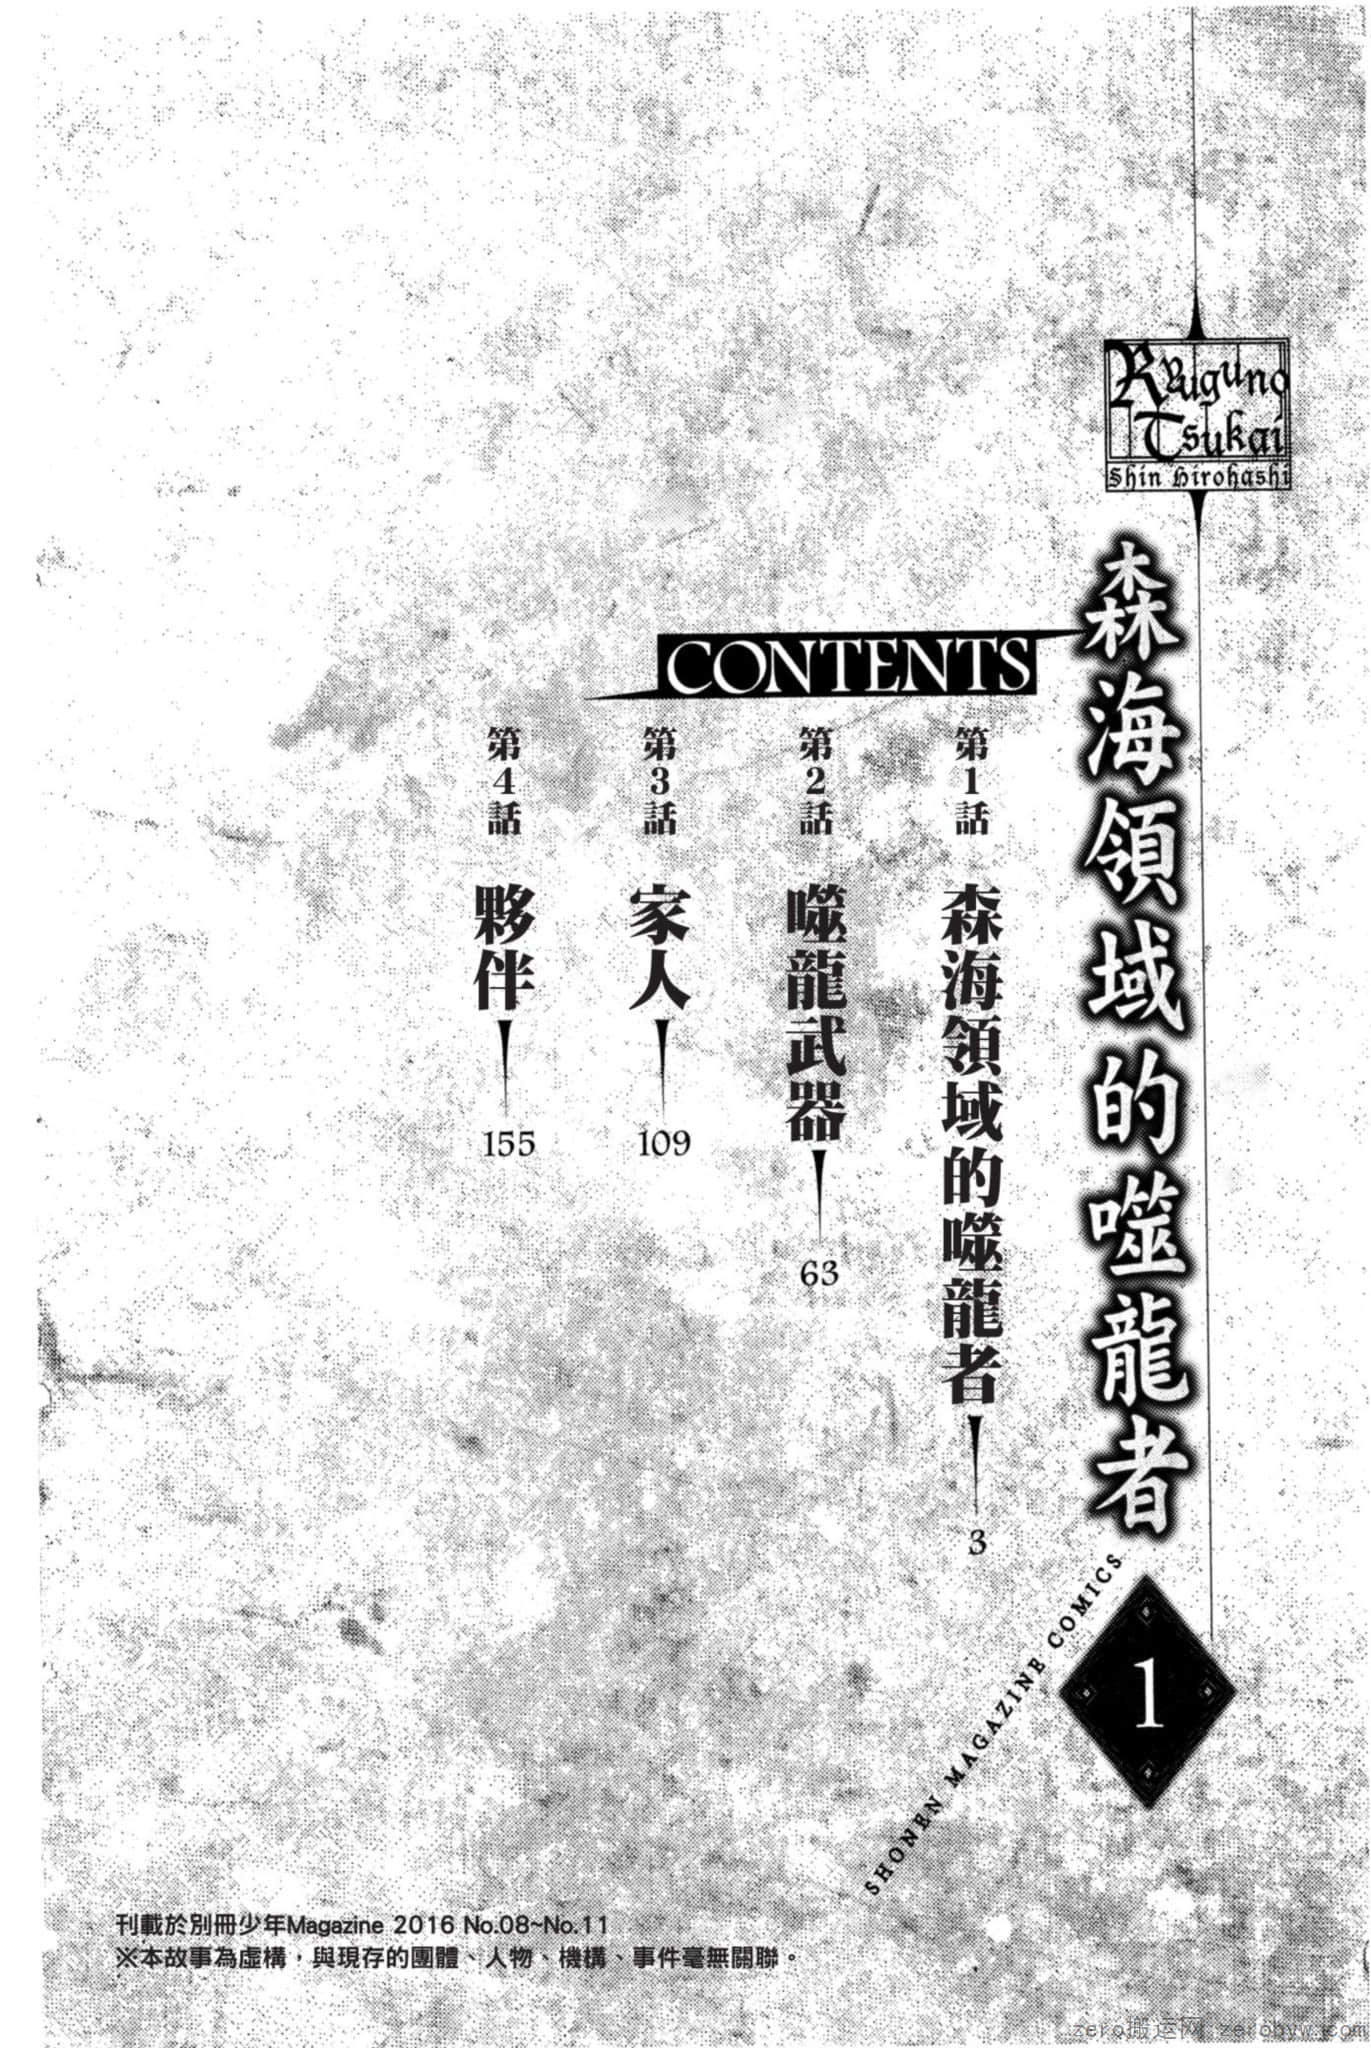 Ryuguno
Tsukai
Shin Hirohashi
森海領域的噬龍者
1
SHONEN MAGAZINE COMICS
CONTENTS
第1話 森海領域的噬龍者 3
第2話 噬龍武器 63
第3話 家人 109
第4話 夥伴 155
刊載於別冊少年Magazine 2016 No.08~No.11
※本故事為虛構，與現存的團體、人物、機構、事件毫無關聯。
zero搬运网 zerobyw.com